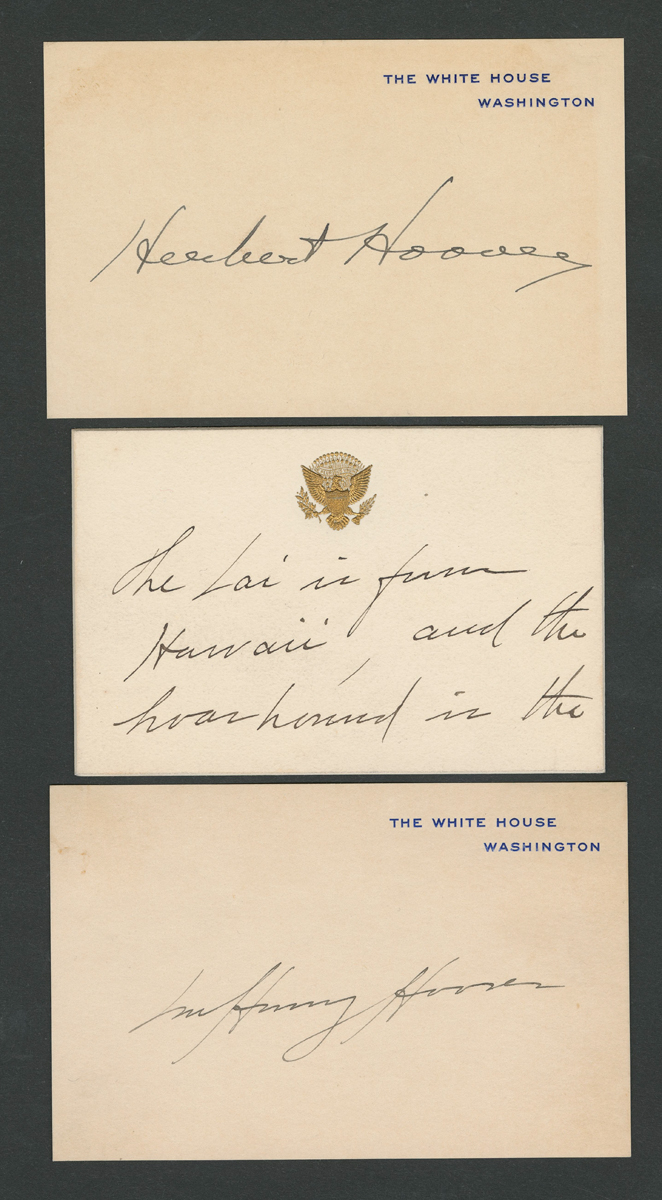 THE WHITE HOUSE
WASHINGTON
Herbert Hoover
The Lai is from
Hawaii, and the
hoarhound is the
THE WHITE HOUSE
WASHINGTON
Lou Henry Hoover